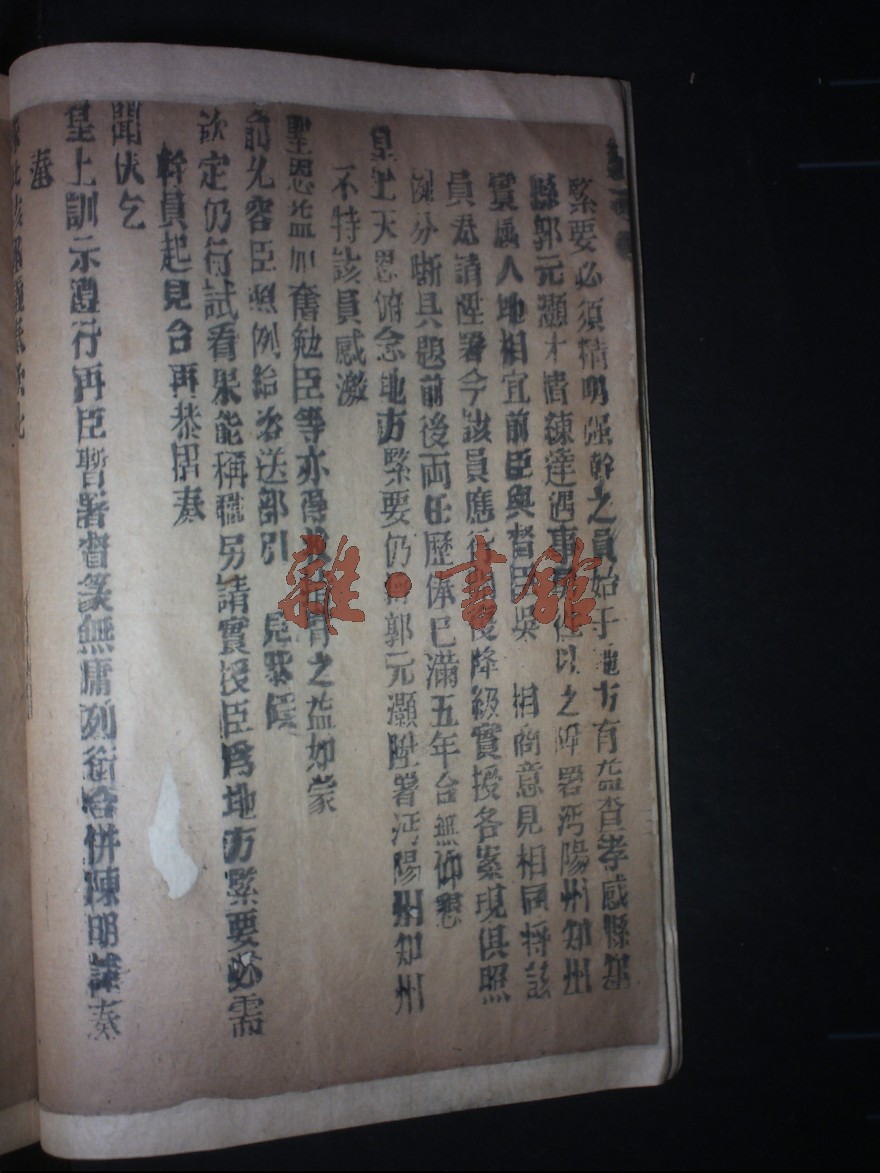 緊要必須精明強幹之員始于地方有益查孝感縣知
縣郭元灝才猷練達遇事以之陞署沔陽州知州
實屬人地相宜前臣與督臣吳 相商意見相同將該
員奏請陞署今該員應行降級實授各案現俱照
例分晰具題前後兩任歷俸已滿五年合無仰懇
皇上天恩俯念地方緊要仍將郭元灝陞署沔陽州知州
不特該員感激
聖恩益加奮勉臣等亦得之益如蒙
俞允容臣照例給咨送部引 見恭候
欽定仍行試看果能稱職另請實授臣為地方緊要必需
幹員起見合再恭摺奏
聞伏乞
皇上訓示遵行再臣暫署督篆無庸列銜合併陳明謹奏
奏
雜·書館